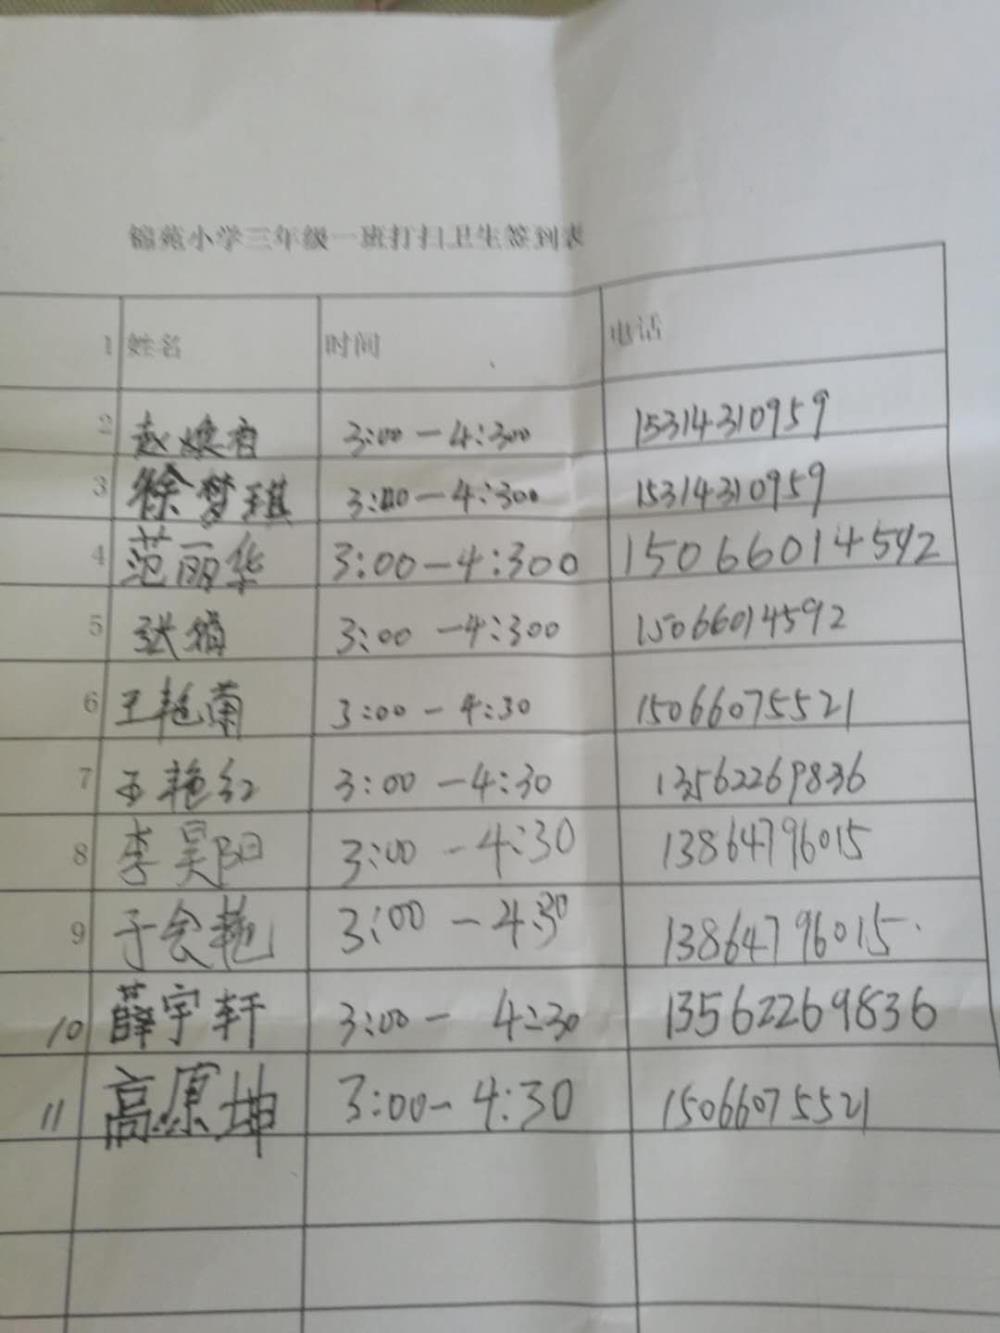 锦苑小学三年级一班打扫卫生签到表
1 姓名 时间 电话
2 赵焕君 3:00-4:300 15314310959
3 徐梦琪 3:00-4:300 15314310959
4 范丽华 3:00-4:300 15066014592
5 张 3:00-4:300 15066014592
6 王艳菊 3:00-4:30 15066075521
7 王艳红 3:00-4:30 13562269836
8 李昊阳 3:00-4:30 13864796015
9 于会艳 3:00-4:30 13864796015
10 薛宇轩 3:00-4:30 13562269836
11 高原坤 3:00-4:30 15066075521